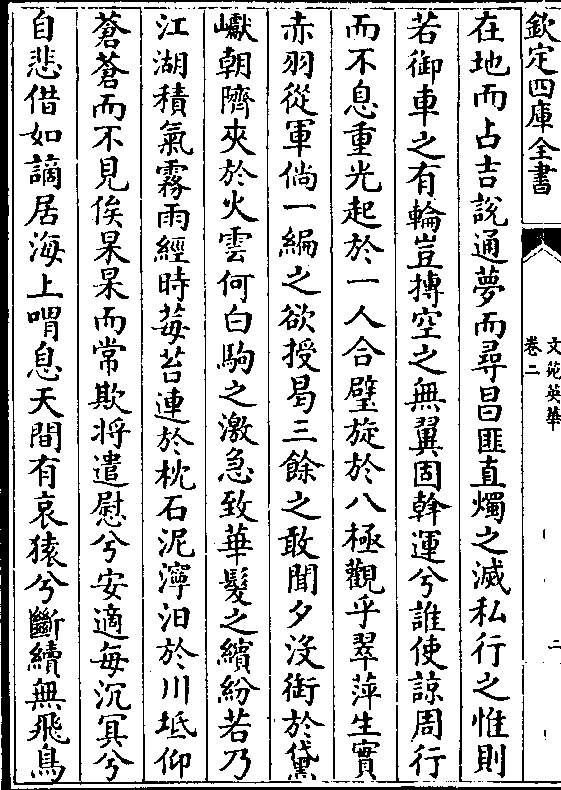 欽定四庫全書
文苑英華
卷二
二
在地而占吉説通夢而尋曰匪直燭之滅私行之惟則
若御車之有輪豈摶空之無翼固斡運兮誰使諒周行
而不息重光起於一人合璧旋於八極觀乎翠萍生實
赤羽從軍倘一編之欲授曷三餘之敢聞夕没銜於黛
巘朝隮夾於火雲何白駒之激急致華髮之繽紛若乃
江湖積氣霧雨經時莓苔連於枕石泥濘汨於川坻仰
蒼蒼而不見俟杲杲而常欺将遣慰兮安適每沉冥兮
自悲借如謫居海上喟息天間有哀猿兮斷續無飛鳥